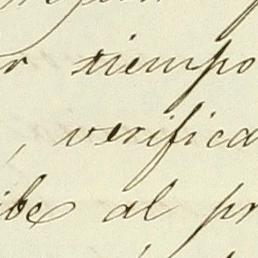 r tiempo
, verifica
ibe al pr